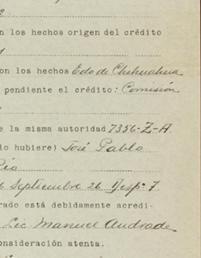 on los hechos origen del crédito
on los hechos Edo de Chihuahua
pendiente el crédito: Comisión
e la misma autoridad 7356-Z-A.
io hubiere) José Pablo
Río
Septiembre 26 Desp. 7.
rado está debidamente acredi-
Lic Manuel Andrade
onsideración atenta.